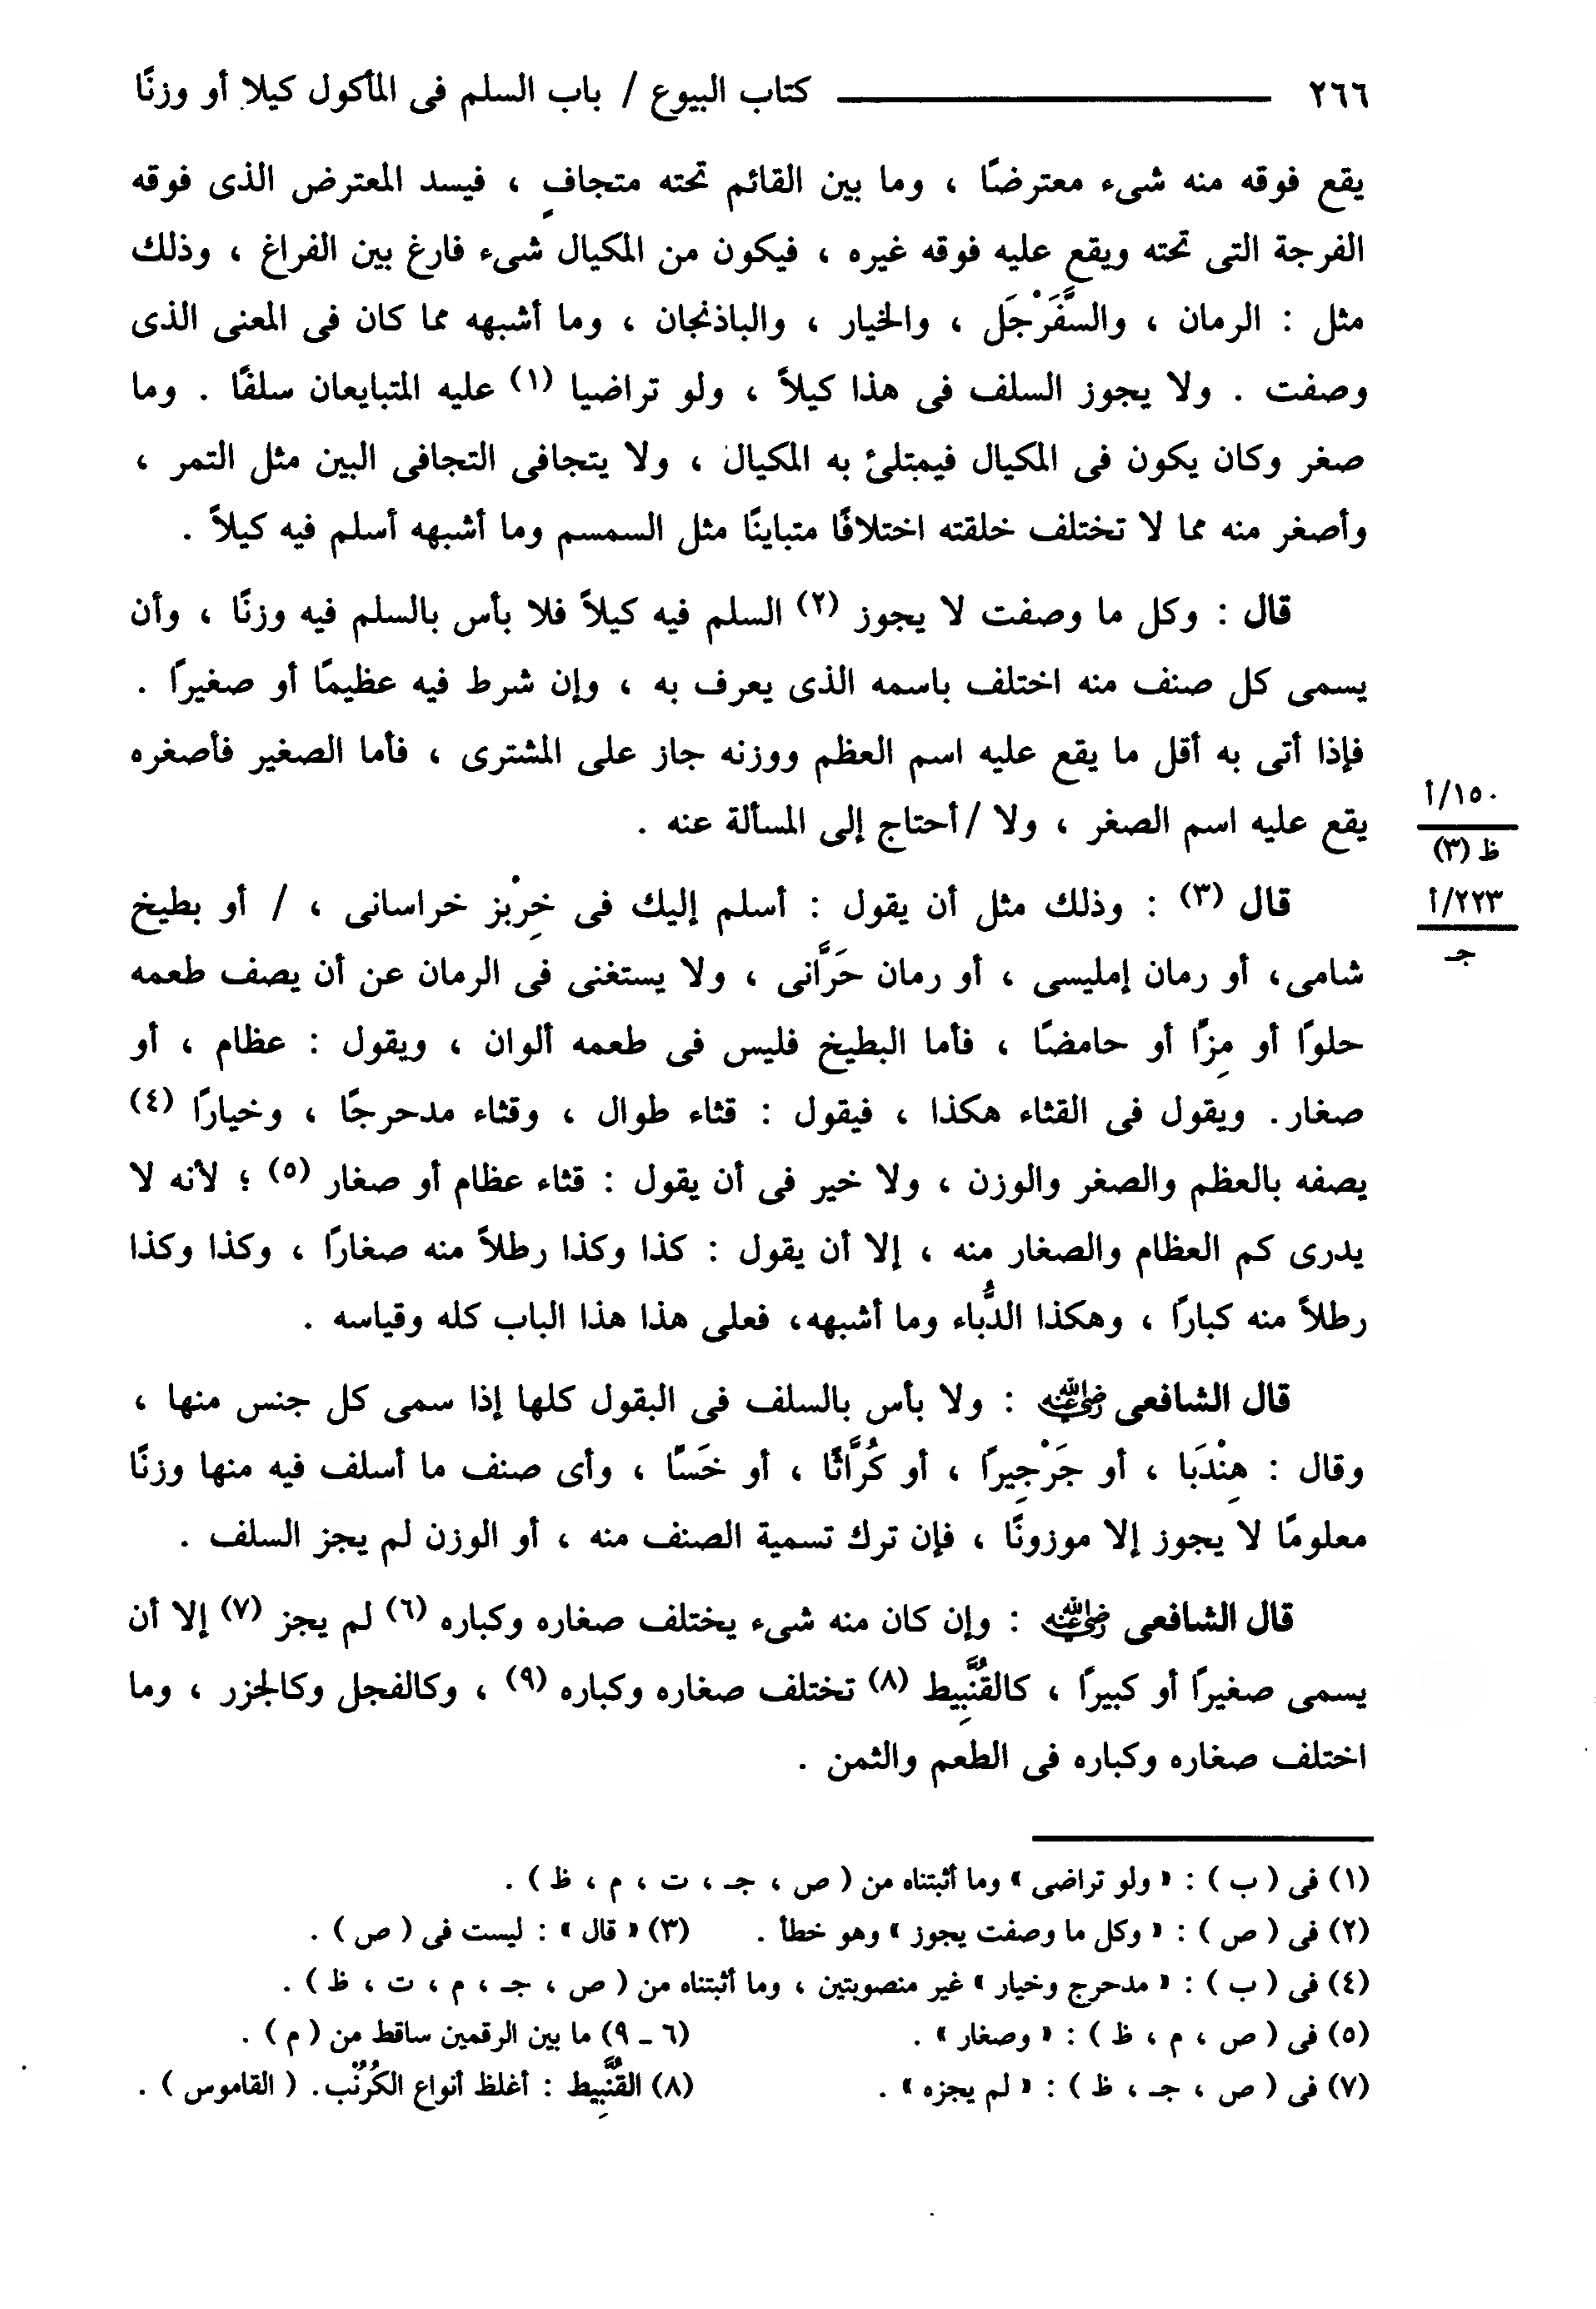 ٢٦٦ كتاب البيوع / باب السلم فى المأكول كيلا أو وزنًا
يقع فوقه منه شىء معترضًا ، وما بين القائم تحته متجافٍ ، فيسد المعترض الذى فوقه
الفرجة التى تحته ويقع عليه فوقه غيره ، فيكون من المكيال شىء فارغ بين الفراغ ، وذلك
مثل : الرمان ، والسَّفَرْجَل ، والخيار ، والباذنجان ، وما أشبهه مما كان فى المعنى الذى
وصفت . ولا يجوز السلف فى هذا كيلاً ، ولو تراضيا (١) عليه المتبايعان سلفًا . وما
صغر وكان يكون فى المكيال فيمتلئ به المكيال ، ولا يتجافى التجافى البين مثل التمر ،
وأصغر منه مما لا تختلف خلقته اختلافًا متباينًا مثل السمسم وما أشبهه أسلم فيه كيلاً .
قال : وكل ما وصفت لا يجوز (٢) السلم فيه كيلاً فلا بأس بالسلم فيه وزنًا ، وأن
يسمى كل صنف منه اختلف باسمه الذى يعرف به ، وإن شرط فيه عظيمًا أو صغيرًا .
فإذا أتى به أقل ما يقع عليه اسم العظم ووزنه جاز على المشترى ، فأما الصغير فأصغره
يقع عليه اسم الصغر ، ولا /أحتاج إلى المسألة عنه .
١٥٠/أ
ظ (٣)
قال (٣) : وذلك مثل أن يقول : أسلم إليك فى خِرْبز خراسانى ، / أو بطيخ
٢٢٣/أ
جـ
شامى، أو رمان إمليسى ، أو رمان حَرَّانى ، ولا يستغنى فى الرمان عن أن يصف طعمه
حلوًا أو مِزًا أو حامضًا ، فأما البطيخ فليس فى طعمه ألوان ، ويقول : عظام ، أو
صغار. ويقول فى القثاء هكذا ، فيقول : قثاء طوال ، وقثاء مدحرجًا ، وخيارًا (٤)
يصفه بالعظم والصغر والوزن ، ولا خير فى أن يقول : قثاء عظام أو صغار (٥) ؛ لأنه لا
يدرى كم العظام والصغار منه ، إلا أن يقول : كذا وكذا رطلاً منه صغارًا ، وكذا وكذا
رطلاً منه كبارًا ، وهكذا الدُّباء وما أشبهه، فعلى هذا هذا الباب كله وقياسه .
قال الشافعى رضي الله عنه : ولا بأس بالسلف فى البقول كلها إذا سمى كل جنس منها ،
وقال : هِنْدَبَا ، أو جَرْجِيرًا ، أو كُرَّاثًا ، أو خَسًا ، وأى صنف ما أسلف فيه منها وزنًا
معلومًا لا يجوز إلا موزونًا ، فإن ترك تسمية الصنف منه ، أو الوزن لم يجز السلف .
قال الشافعى رضي الله عنه : وإن كان منه شىء يختلف صغاره وكباره (٦) لم يجز (٧) إلا أن
يسمى صغيرًا أو كبيرًا ، كالقُنَّبِيط (٨) تختلف صغاره وكباره (٩) ، وكالفجل وكالجزر ، وما
اختلف صغاره وكباره فى الطعم والثمن .
(١) فى ( ب ) : « ولو تراضى » وما أثبتناه من ( ص ، جـ ، ت ، م ، ظ ) .
(٢) فى ( ص ) : « وكل ما وصفت يجوز » وهو خطأ . (٣) « قال » : ليست فى ( ص ) .
(٤) فى ( ب ) : « مدحرج وخيار » غير منصوبتين ، وما أثبتناه من ( ص ، جـ ، م ، ت ، ظ ) .
(٥) فى ( ص ، م ، ظ ) : « وصغار » . (٦ ـ ٩) ما بين الرقمين ساقط من ( م ) .
(٧) فى ( ص ، جـ ، ظ ) : « لم يجزه » . (٨) القُنَّبِيط : أغلظ أنواع الكُرُنْب. ( القاموس ) .